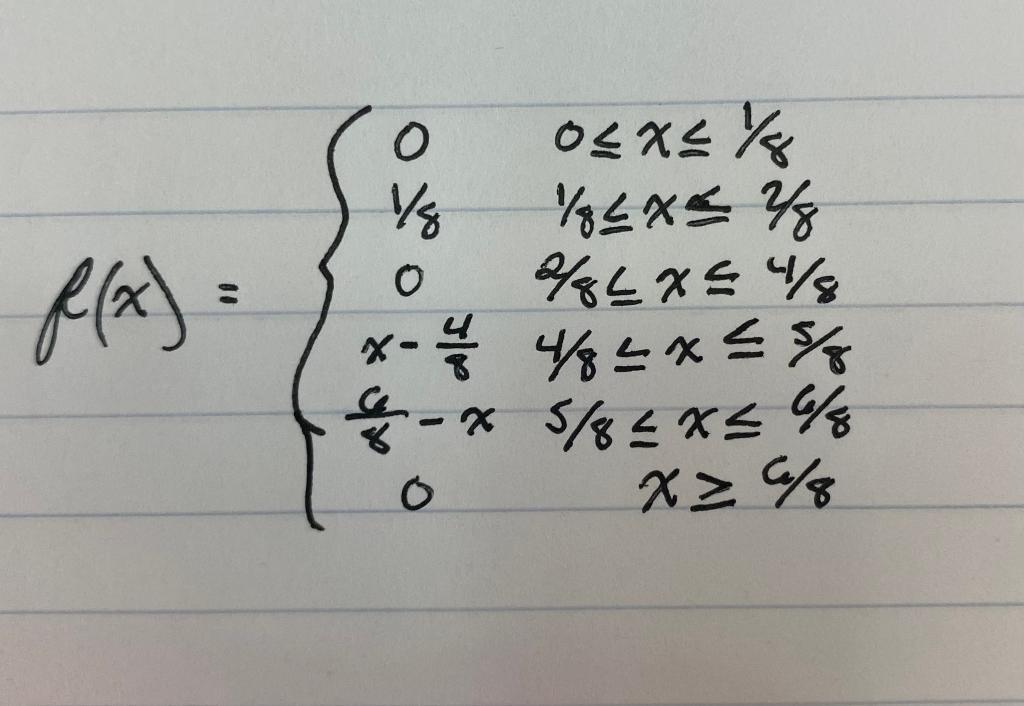 0 0 ≤ x ≤ 1/8
1/8 1/8 ≤ x ≤ 2/8
0 2/8 ≤ x ≤ 4/8
f(x) =
x - 4/8 4/8 ≤ x ≤ 5/8
6/8 - x 5/8 ≤ x ≤ 6/8
0 x ≥ 6/8